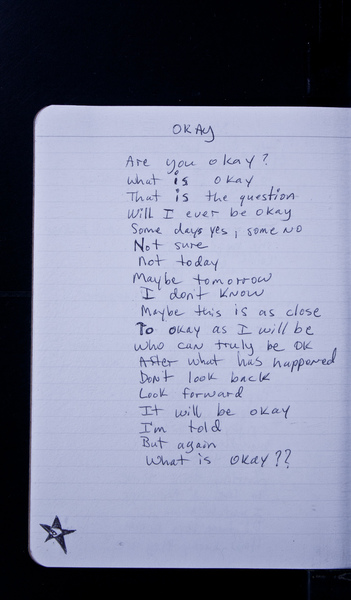 OKAY
Are you okay?
What is okay
That is the question
Will I ever be okay
Some days yes, some NO
Not sure
Not today
Maybe tomorrow
I don't know
Maybe this is as close
To okay as I will be
Who can truly be OK
After what has happened
Don't look back
Look forward
It will be okay
I'm told
But again
What is okay??